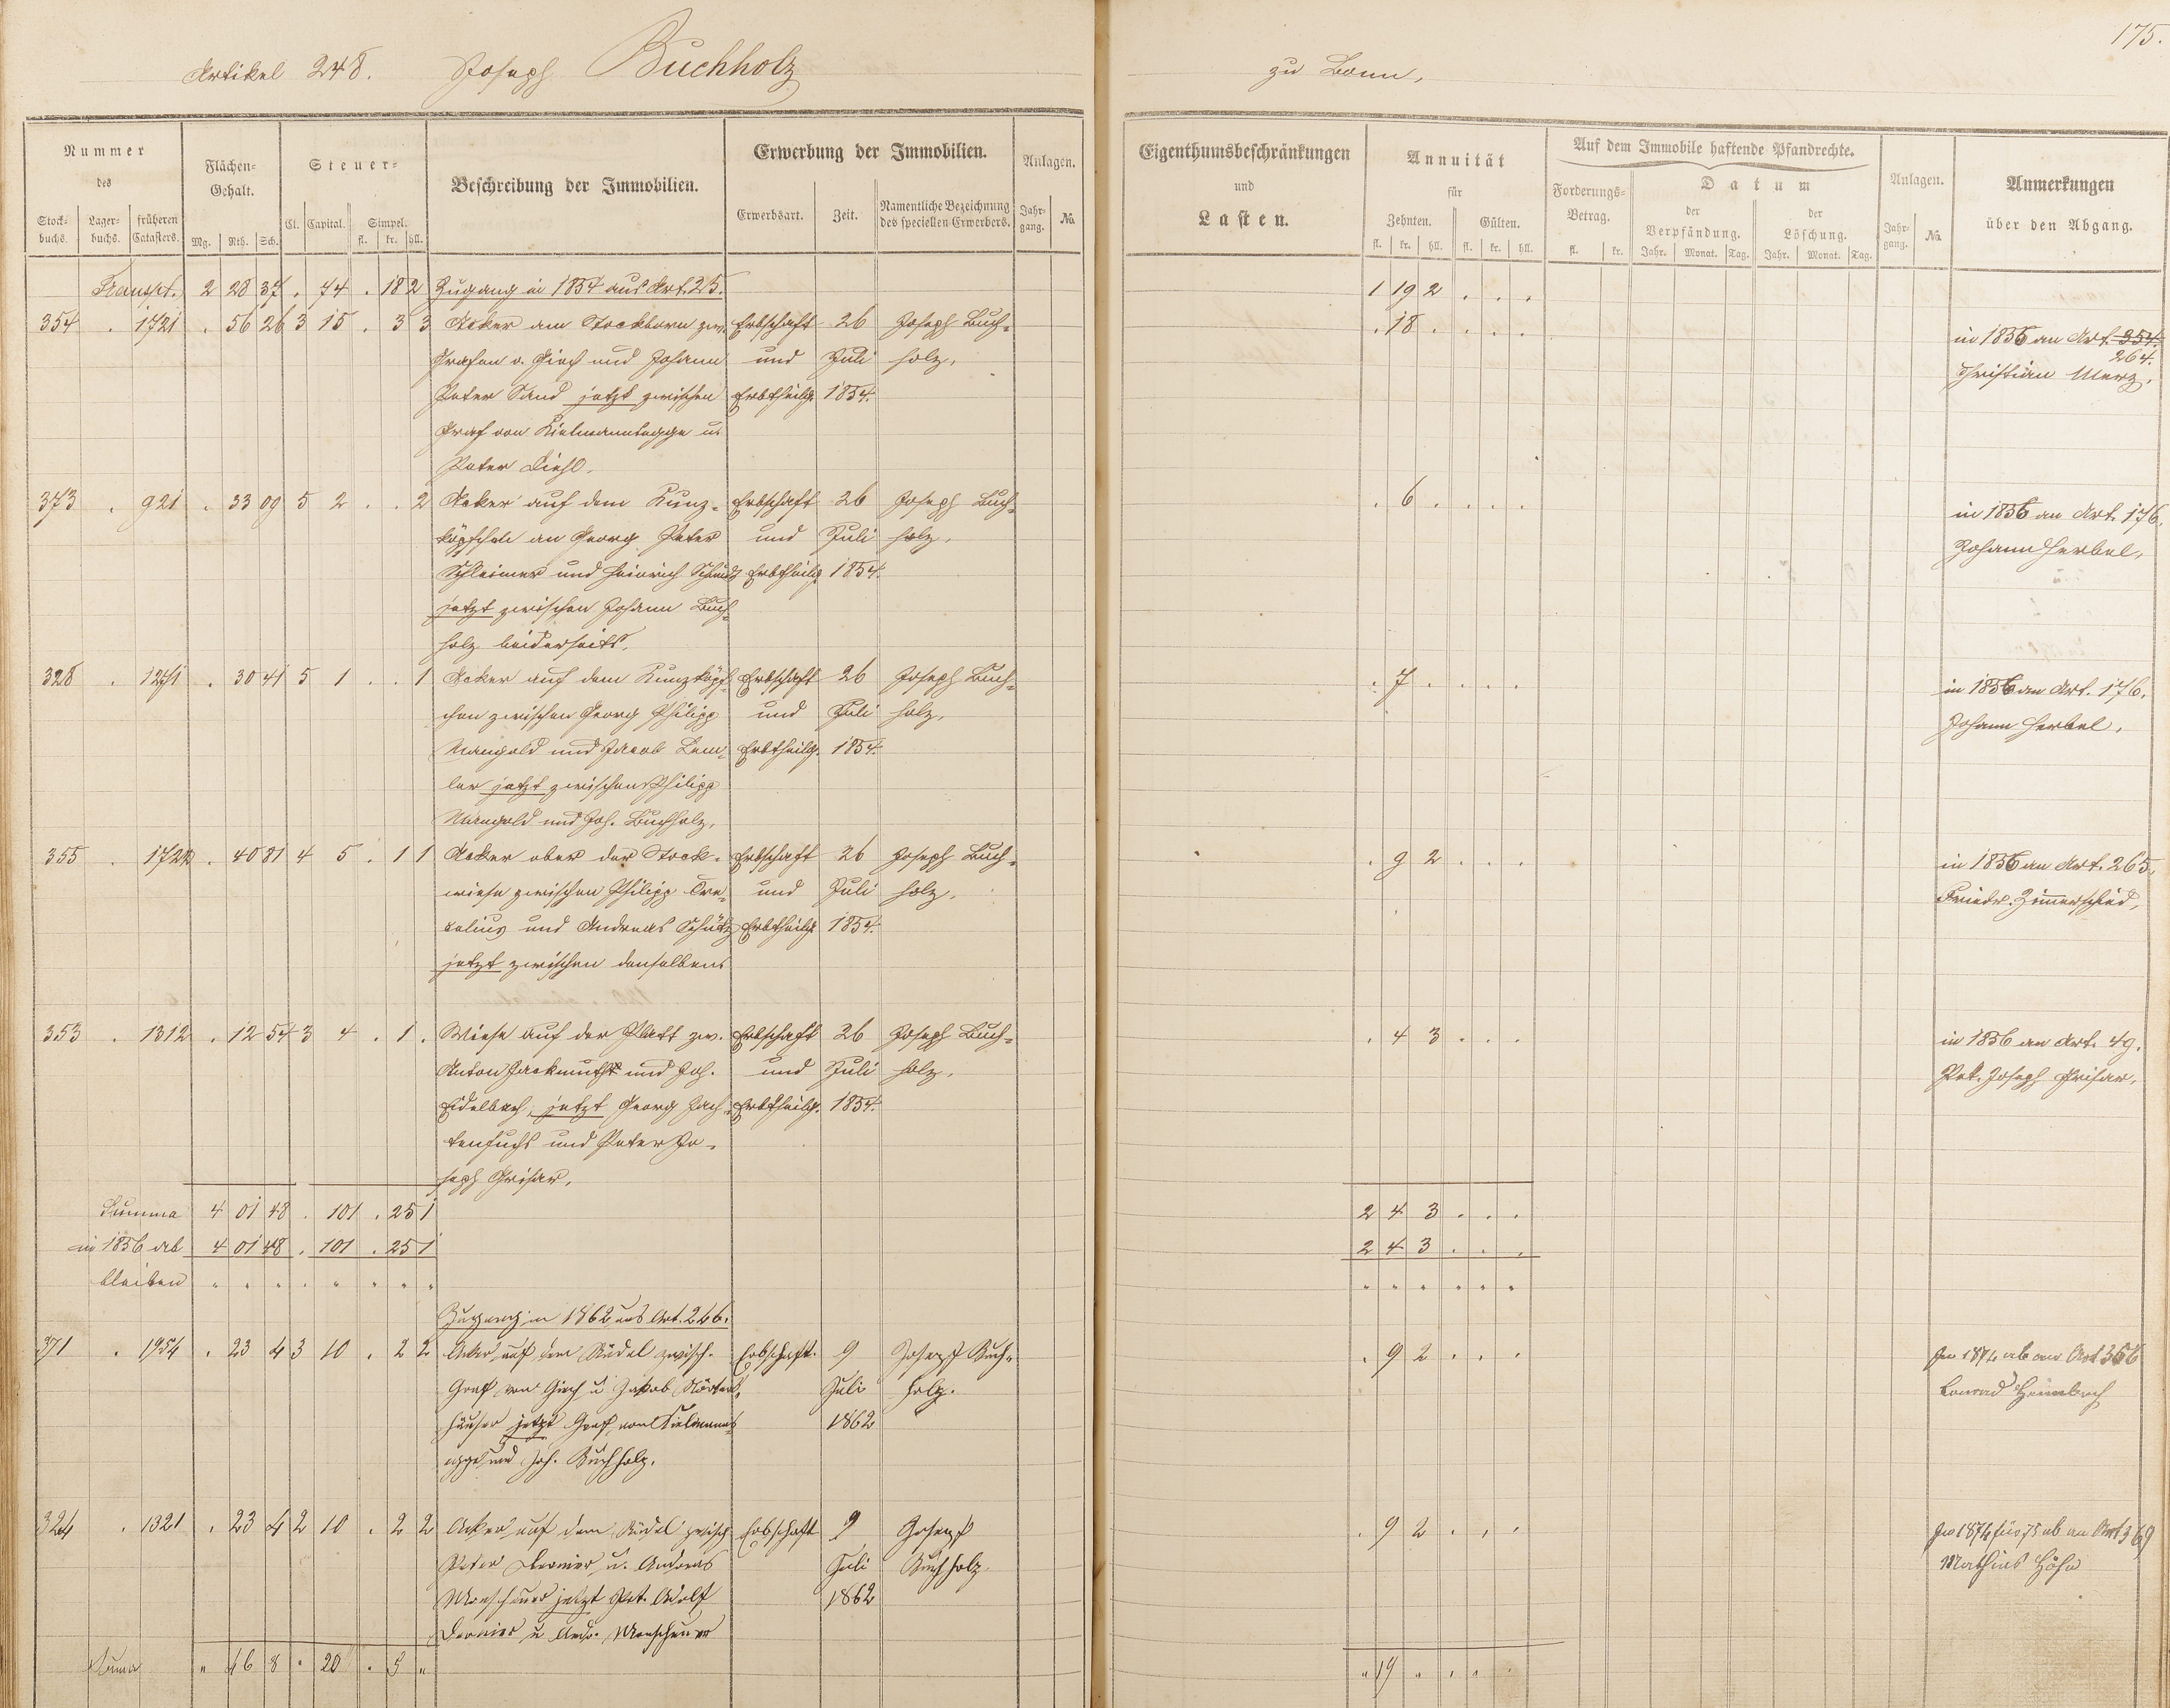 175.
Artikel 248. Joseph Buchholz zu Bonn.
Nummer des
Stockbuchs. Lagerbuchs. früheren Catasters.
Flächen-Gehalt.
Mg. Rth. Sch.
Steuer-
Cl. Capital. Simpel. fl. kr. hll.
Beschreibung der Immobilien.
Erwerbung der Immobilien.
Erwerbsart. Zeit. Namentliche Bezeichnung des speciellen Erwerbers.
Anlagen.
Jahrgang. No.
Eigenthumsbeschränkungen und Lasten.
Annuität für
Zehnten. Gülten.
fl. kr. hll. fl. kr. hll.
Auf dem Immobile haftende Pfandrechte.
Forderungs-Betrag. fl. kr.
Datum
der Verpfändung. der Löschung.
Jahr. Monat. Tag. Jahr. Monat. Tag.
Anlagen.
Jahrgang. No.
Anmerkungen über den Abgang.
Transpt. 2 28 37 . 74 . 18 2 Zugang in 1854 aus Art. 25. 1 19 2 . . .
354 . 1721 . 56 26 3 15 . 3 3 Acker am Stockborn zw. Erbschaft 26 Joseph Buch- . 18 . . . . in 1856 an Art. 354.
264.
Grafen v. Giech und Johann und Juli holz. Christian Merz.
Peter Sand jetzt zwischen Erbtheilg. 1854.
Graf von Kielmannsegge u.
Peter Diehl.
373 . 921 . 33 09 5 2 . . 2 Acker auf dem Kunz- Erbschaft 26 Joseph Buch- . 6 . . . . in 1856 an Art. 176.
köpfchen an Georg Peter und Juli holz. Johann Herbel.
Schleimer und Heinrich Schmidt Erbtheilg. 1854.
jetzt zwischen Johann Buch-
holz beiderseits.
328 . 1271 . 30 41 5 1 . . 1 Acker auf dem Kunzköpf- Erbschaft 26 Joseph Buch- . 7 . . . . in 1856 an Art. 176.
chen zwischen Georg Philipp und Juli holz. Johann Herbel.
Mangold und Jacob Lem- Erbtheilg. 1854.
ler jetzt zwischen Philipp
Mangold und Joh. Buchholz.
355 . 1722 . 40 81 4 5 . 1 1 Acker ober der Stock- Erbschaft 26 Joseph Buch- . 9 2 . . . in 1856 an Art. 265.
wiese zwischen Philipp Cre- und Juli holz. Friedr. Zimmerschied.
celius und Andreas Schütz Erbtheilg. 1854.
jetzt zwischen denselben
353 . 1312 . 12 54 3 4 . 1 . Wiese auf der Platt zw. Erbschaft 26 Joseph Buch- . 4 3 . . . in 1856 an Art. 49.
Anton Jackmuth und Joh. und Juli holz. Pet. Joseph Grisar.
Eidelbach, jetzt Georg Fach- Erbtheilg. 1854.
tenfuchs und Peter Jo-
seph Grisar.
Summa 4 01 48 . 101 . 25 1 2 4 3 . . .
in 1856 ab 4 01 48 . 101 . 25 1 2 4 3 . . .
bleiben " " " . " " " " " " " " " "
Zugang in 1862 aus Art. 246.
371 . 1954 . 23 4 3 10 . 2 2 Acker auf dem Rüdel zwisch. Erbschaft. 9 Joseph Buch- . 9 2 . . . In 1874 ab an Art 356
Graf von Giech u Jakob Nörters- Juli holz. Conrad Heimbach
häuser jetzt Graf von Kielmanns- 1862
egge und Joh. Buchholz.
324 . 1321 . 23 4 2 10 . 2 2 Acker auf dem Rüdel zwisch Erbschaft 9 Joseph . 9 2 . . . In 1874 für 75 ab an Art 369
Peter Dernier u. Andreas Juli Buchholz. Mathias Höhn
Monschauer jetzt Pet. Adolf 1862
Dernier u Andr. Monschauer
Suma " 46 8 . 20 . 5 " " 19 " . . .